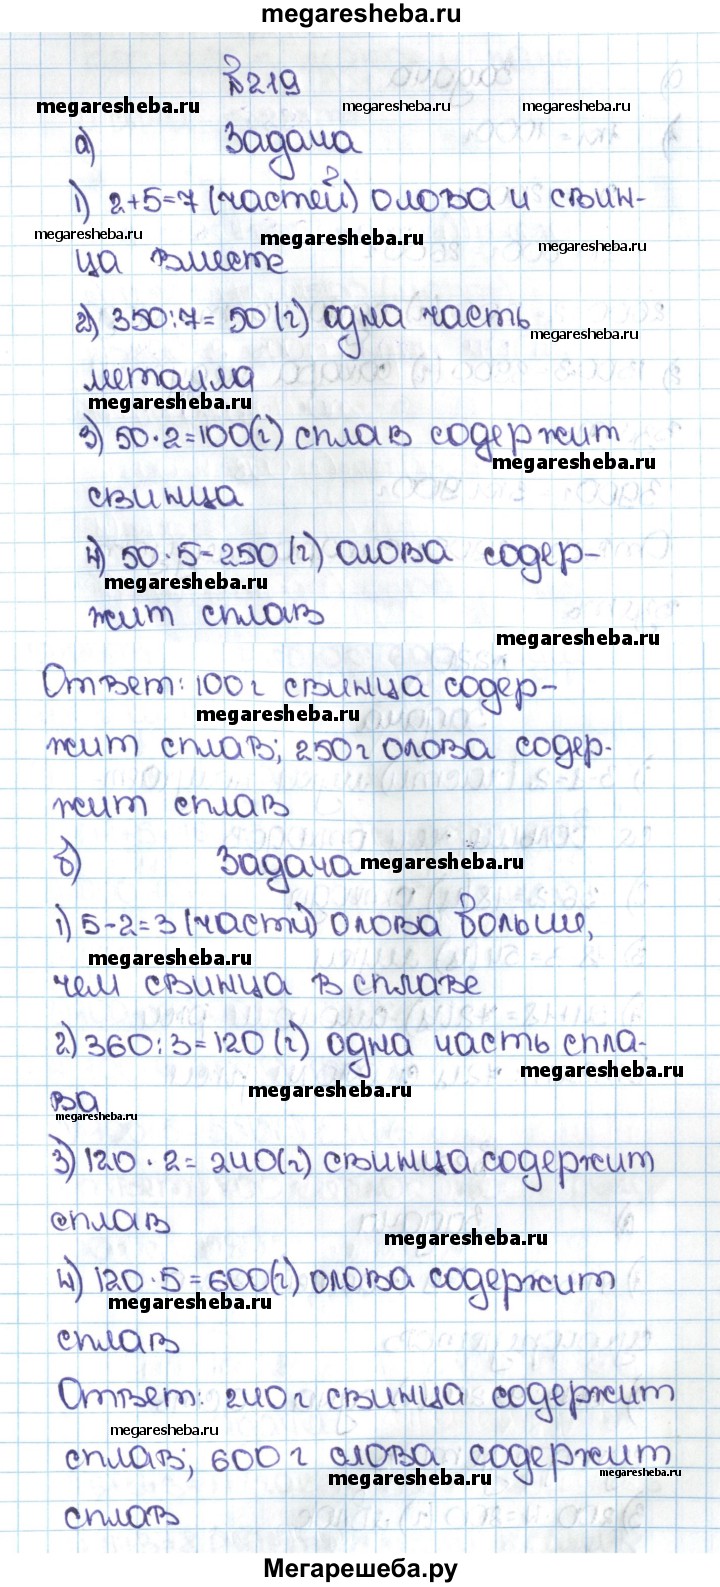 megaresheba.ru
№219
megaresheba.ru megaresheba.ru megaresheba.ru
а) Задача
1) 2+5=7 (частей) олова и свин-
megaresheba.ru megaresheba.ru megaresheba.ru
ца вместе
2) 350:7=50(г) одна часть
megaresheba.ru
металла
megaresheba.ru
3) 50·2=100(г) сплав содержит
megaresheba.ru
свинца
4) 50·5=250(г) олова содер-
megaresheba.ru
жит сплав
megaresheba.ru
Ответ: 100г свинца содер-
megaresheba.ru
жит сплав; 250г олова содер-
жит сплав
б) Задача megaresheba.ru
1) 5-2=3 (части) олова больше,
megaresheba.ru
чем свинца в сплаве
2) 360:3=120(г) одна часть спла-
megaresheba.ru
megaresheba.ru
ва
megaresheba.ru
3) 120·2=240(г) свинца содержит
сплав
megaresheba.ru
4) 120·5=600(г) олова содержит
megaresheba.ru
сплав
Ответ: 240г свинца содержит
megaresheba.ru
сплав; 600г олова содержит
megaresheba.ru megaresheba.ru
сплав
Мегарешеба.ру